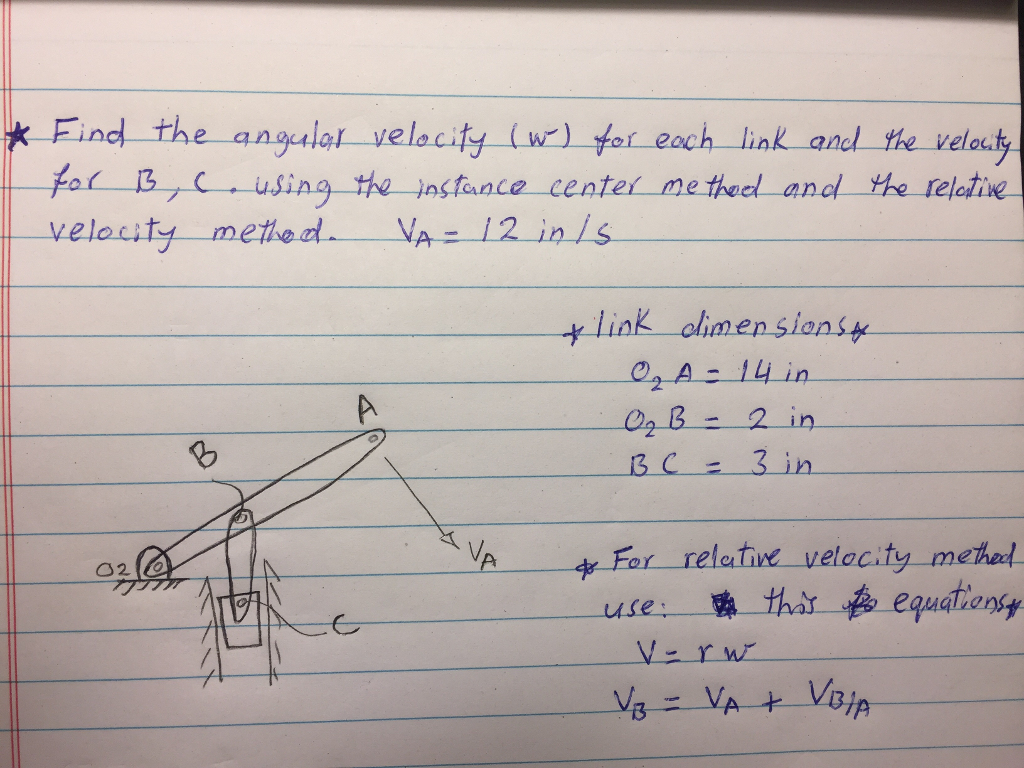 * Find the angular velocity (w) for each link and the velocity
for B, C. using the instance center method and the relative
velocity method. VA = 12 in/s
* link dimensions *
O2 A = 14 in
O2 B = 2 in
B C = 3 in
A
B
O2
VA
C
* For relative velocity method
use: this equations *
V = r w
VB = VA + VB/A